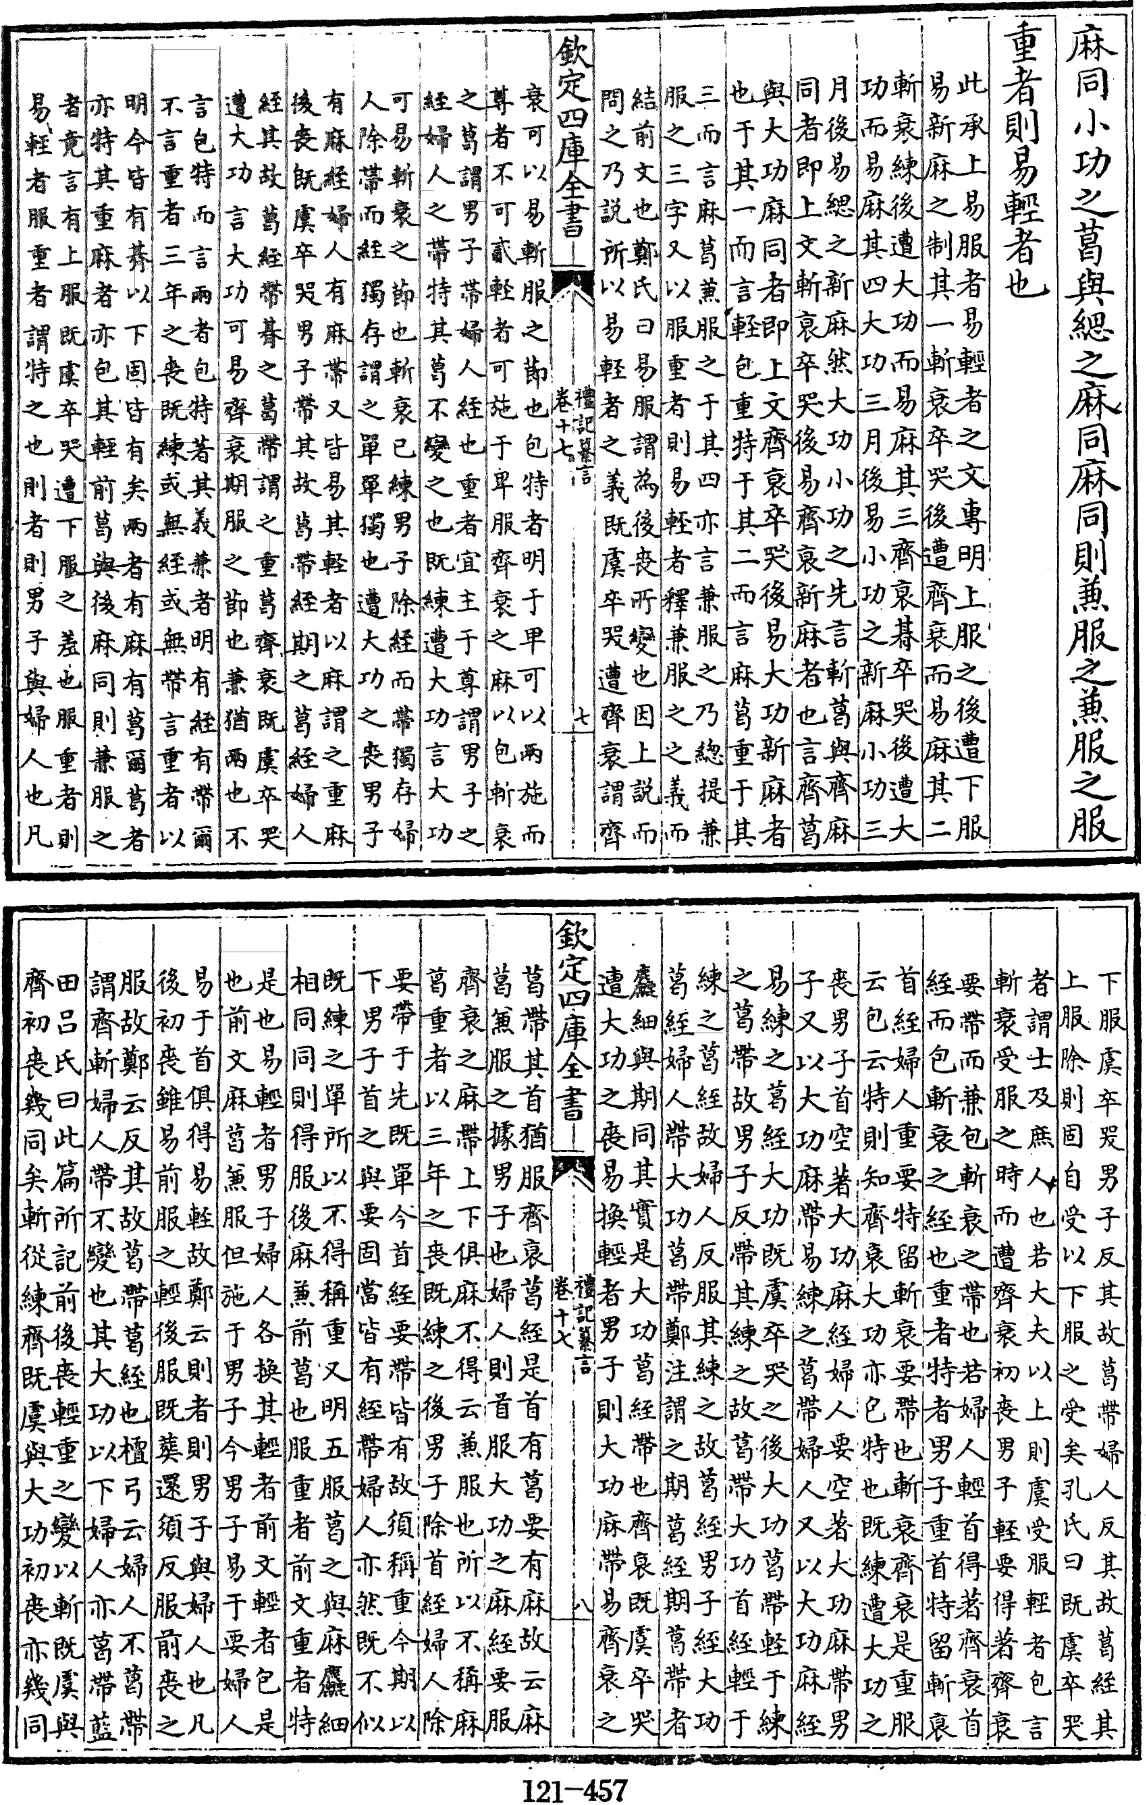 麻同小功之葛與緦之麻同麻同則兼服之兼服之服
重者則易輕者也
此承上易服者易輕者之文專明上服之後遭下服
易新麻之制其一斬衰卒哭後遭齊衰而易麻其二
斬衰練後遭大功而易麻其三齊衰朞卒哭後遭大
功而易麻其四大功三月後易小功之新麻小功三
月後易緦之新麻然大功小功之先言斬葛與齊麻
同者即上文斬衰卒哭後易齊衰新麻者也言齊葛
與大功麻同者即上文齊衰卒哭後易大功新麻者
也于其一而言輕包重特于其二而言麻葛重于其
三而言麻葛兼服之于其四亦言兼服之乃總提兼
服之三字又以服重者則易輕者釋兼服之之義而
結前文也鄭氏曰易服謂為後喪所變也因上說而
問之乃說所以易輕者之義既虞卒哭遭齊衰謂齊
欽定四庫全書
禮記纂言
卷十七
七
衰可以易斬服之節也包特者明于卑可以兩施而
尊者不可貳輕者可施于卑服齊衰之麻以包斬衰
之葛謂男子帶婦人絰也重者宜主于尊謂男子之
絰婦人之帶特其葛不變之也既練遭大功言大功
可易斬衰之節也斬衰已練男子除絰而帶獨存婦
人除帶而絰獨存謂之單單獨也遭大功之喪男子
有麻絰婦人有麻帶又皆易其輕者以麻謂之重麻
後喪既虞卒哭男子帶其故葛帶絰期之葛絰婦人
絰其故葛絰帶朞之葛帶謂之重葛齊衰既虞卒哭
遭大功言大功可易齊衰期服之節也兼猶兩也不
言包特而言兩者包特著其義兼者明有絰有帶爾
不言重者三年之喪既練或無絰或無帶言重者以
明今皆有朞以下固皆有矣兩者有麻有葛爾葛者
亦特其重麻者亦包其輕前葛與後麻同則兼服之
者竟言有上服既虞卒哭遭下服之差也服重者則
易輕者服重者謂特之也則者則男子與婦人也凡
下服虞卒哭男子反其故葛帶婦人反其故葛絰其
上服除則固自受以下服之受矣孔氏曰既虞卒哭
者謂士及庶人也若大夫以上則虞受服輕者包言
斬衰受服之時而遭齊衰初喪男子輕要得著齊衰
要帶而兼包斬衰之帶也若婦人輕首得著齊衰首
絰而包斬衰之絰也重者特者男子重首特留斬衰
首絰婦人重要特留斬衰要帶也斬衰齊衰是重服
云包云特則知齊衰大功亦包特也既練遭大功之
喪男子首空著大功麻絰婦人要空著大功麻帶男
子又以大功麻帶易練之葛帶婦人又以大功麻絰
易練之葛絰大功既虞卒哭之後大功葛帶輕于練
之葛帶故男子反帶其練之故葛帶大功首絰輕于
練之葛絰故婦人反服其練之故葛絰男子絰大功
葛絰婦人帶大功葛帶鄭注謂之期葛絰期葛帶者
麤細與期同其實是大功葛絰帶也齊衰既虞卒哭
遭大功之喪易換輕者男子則大功麻帶易齊衰之
欽定四庫全書
禮記纂言
卷十七
八
葛帶其首猶服齊衰葛絰是首有葛要有麻故云麻
葛兼服之據男子也婦人則首服大功之麻絰要服
齊衰之麻帶上下俱麻不得云兼服也所以不稱麻
葛重者以三年之喪既練之後男子除首絰婦人除
要帶于先既單今首絰要帶皆有故須稱重今期以
下男子首之與要固當皆有絰帶婦人亦然既不似
既練之單所以不得稱重又明五服葛之與麻麤細
相同同則得服後麻兼前葛也服重者前文重者特
是也易輕者男子婦人各換其輕者前文輕者包是
也前文麻葛兼服但施于男子今男子易于要婦人
易于首俱得易輕故鄭云則者則男子與婦人也凡
後初喪雖易前服之輕後服既葬還須反服前喪之
服故鄭云反其故葛帶葛絰也檀弓云婦人不葛帶
謂齊斬婦人帶不變也其大功以下婦人亦葛帶藍
田呂氏曰此篇所記前後喪輕重之變以斬既虞與
齊初喪幾同矣斬從練齊既虞與大功初喪亦幾同
121-457